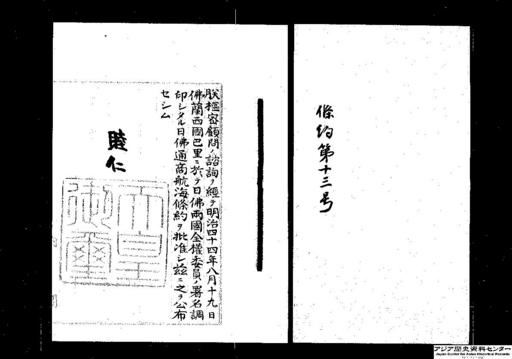 條約第十三号
朕樞密顧問ノ諮詢ヲ經テ明治四十四年八月十九日
佛蘭西國巴里ニ於テ日佛兩國全權委員ノ署名調
印シタル日佛通商航海條約ヲ批准シ茲ニ之ヲ公布
セシム
睦仁
天皇
御璽
アジア歴史資料センター
Japan Center for Asian Historical Records